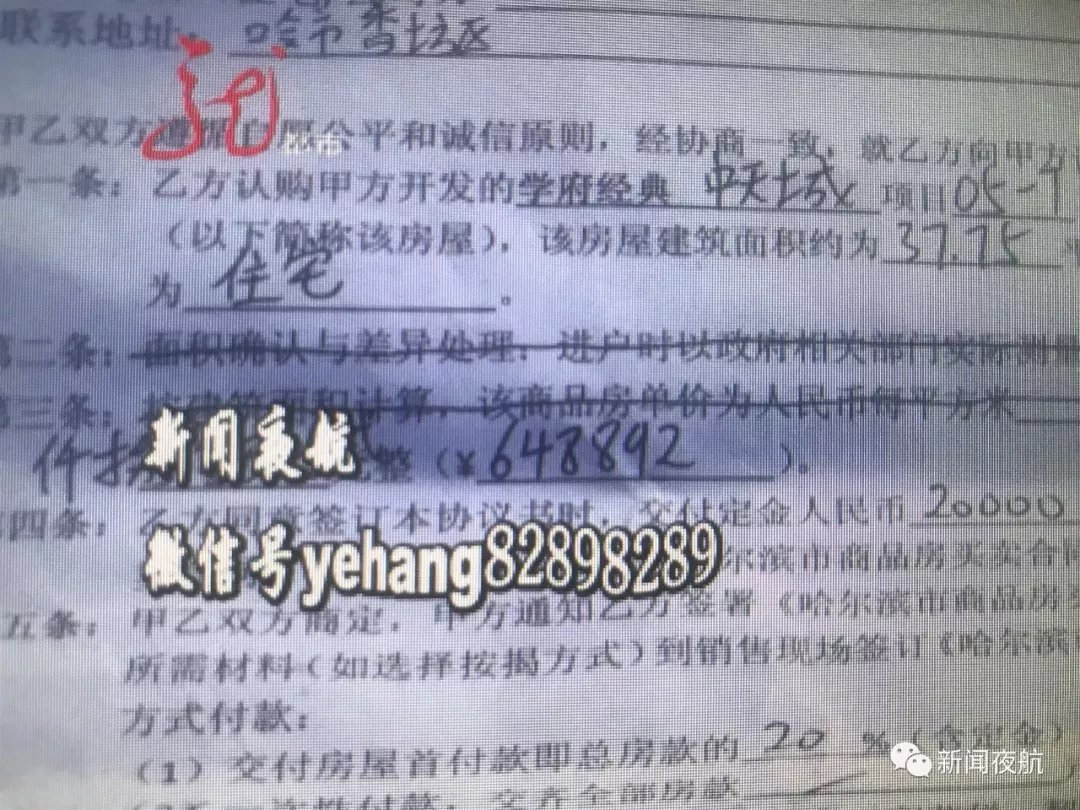 联系地址：哈市香坊区
甲乙双方遵照自愿公平和诚信原则，经协商一致，就乙方向甲方
第一条：乙方认购甲方开发的学府经典 中天城 项目05-1
（以下简称该房屋），该房屋建筑面积约为37.75
为住宅。
第二条：面积确认与差异处理：进户时以政府相关部门实际测
第三条：按建筑面积计算，该商品房单价为人民币每平方米
新闻夜航
整（¥648892）。
第四条：乙方同意签订本协议书时，交付定金人民币20000
微信号yehang82898289
尔滨市商品房买卖合同
五条：甲乙双方商定，甲方通知乙方签署《哈尔滨市商品房
所需材料（如选择按揭方式）到销售现场签订《哈尔滨
方式付款：
（1）交付房屋首付款即总房款的20%（含定金）
一次性付款，交齐全部房款
新闻夜航